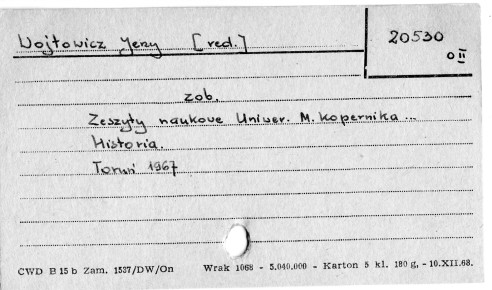 Wojtowicz Jerzy [red.]
20530
o II
zob.
Zeszyty naukowe Uniwer. M. Kopernika ...
Historia.
Toruń 1967
CWD B 15 b Zam. 1537/DW/On Wrak 1068 - 5.040.000 - Karton 5 kl. 180 g, - 10.XII.68.